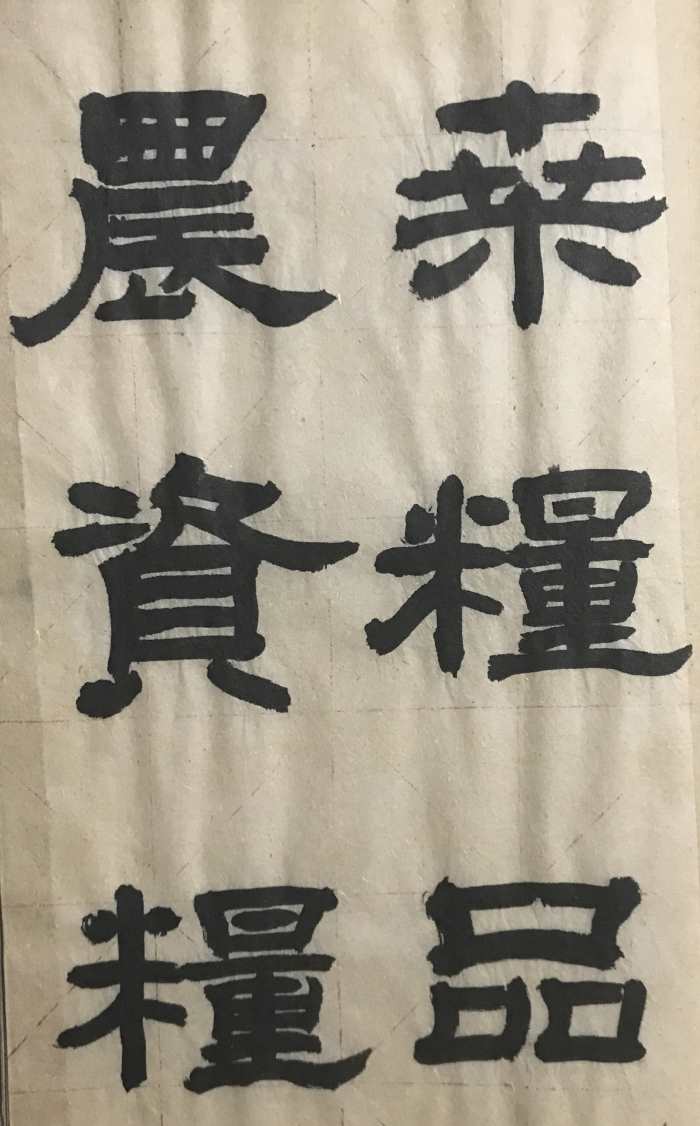 桒糧品
農資糧